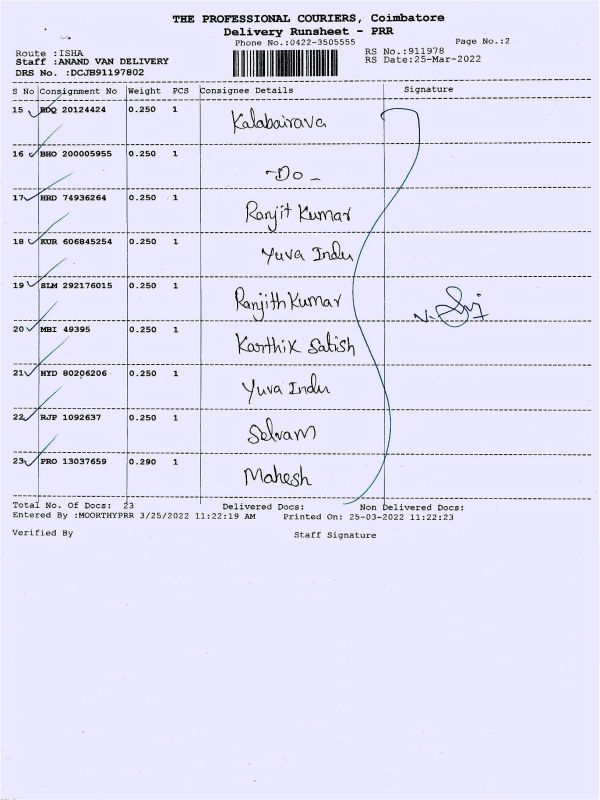 THE PROFESSIONAL COURIERS, Coimbatore
Delivery Runsheet - PRR
Phone No.:0422-3505555 Page No.:2
Route :ISHA RS No.:911978
Staff :ANAND VAN DELIVERY RS Date:25-Mar-2022
DRS No. :DCJB91197802
S No Consignment No Weight PCS Consignee Details Signature
15 BDQ 20124424 0.250 1 Kalabairava
16 BHO 200005955 0.250 1 -Do-
17 HRD 74936264 0.250 1 Ranjit Kumar
18 KUR 606845254 0.250 1 Yuva Indu
19 SLM 292176015 0.250 1 Ranjith Kumar
20 MBI 49395 0.250 1 Karthik Satish
21 HYD 80206206 0.250 1 Yuva Indu
22 RJP 1092637 0.250 1 Selvam
23 PRO 13037659 0.290 1 Mahesh
Total No. Of Docs: 23 Delivered Docs: Non Delivered Docs:
Entered By :MOORTHYPRR 3/25/2022 11:22:19 AM Printed On: 25-03-2022 11:22:23
Verified By Staff Signature